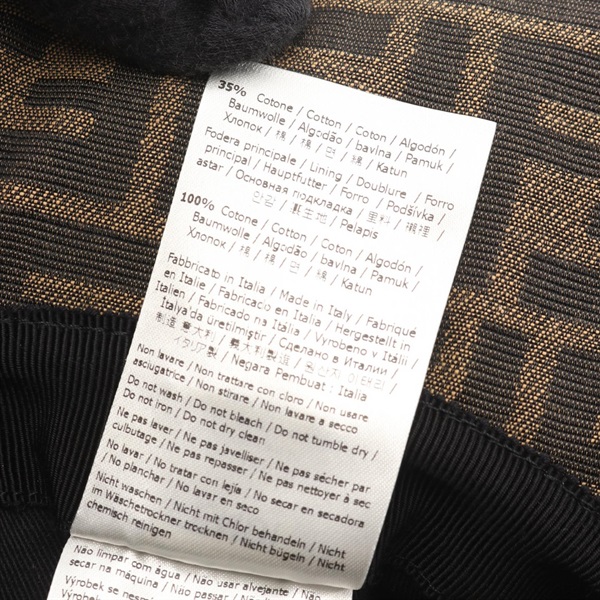 35% Cotone / Cotton / Coton / Algodón /
Baumwolle / Algodão / bavlna / Pamuk /
Хлопок / 棉 / 棉 / 면 / 綿 / Katun
Fodera principale / Lining / Doublure / Forro
principal / Hauptfutter / Forro / Podšívka /
astar / Основная подкладка / 里料 / 裡 /
안감 / 生地 / Pelapis
100% Cotone / Cotton / Coton / Algodón /
Baumwolle / Algodão / bavlna / Pamuk /
Хлопок / 棉 / 棉 / 면 / 綿 / Katun
Fabbricato in Italia / Made in Italy / Fabriqué
en Italie / Fabricado en Italia / Hergestellt in
Italien / Fabricado na Itália / Vyrobeno v Itálii /
İtalya'da üretilmiştir / Сделано в Италии /
制造 意大利 / 義大利製造 /
イタリア製 / Negara Pembuat : Italia
Non lavare / Non trattare con cloro / Non usare
asciugatrice / Non stirare / Non lavare a secco
Do not wash / Do not bleach / Do not tumble dry /
Do not iron / Do not dry clean
Ne pas laver / Ne pas javelliser / Ne pas sécher par
culbutage / Ne pas repasser / Ne pas nettoyer à sec
No lavar / No tratar con lejía / No secar en secadora
/ No planchar / No lavar en seco
Nicht waschen / Nicht mit Chlor behandeln / Nicht
im Wäschetrockner trocknen / Nicht bügeln / Nicht
chemisch reinigen
Não limpar com água / Não usar alvejante / Não
secar na máquina / Não passar / Não
Výrobek se nesmí